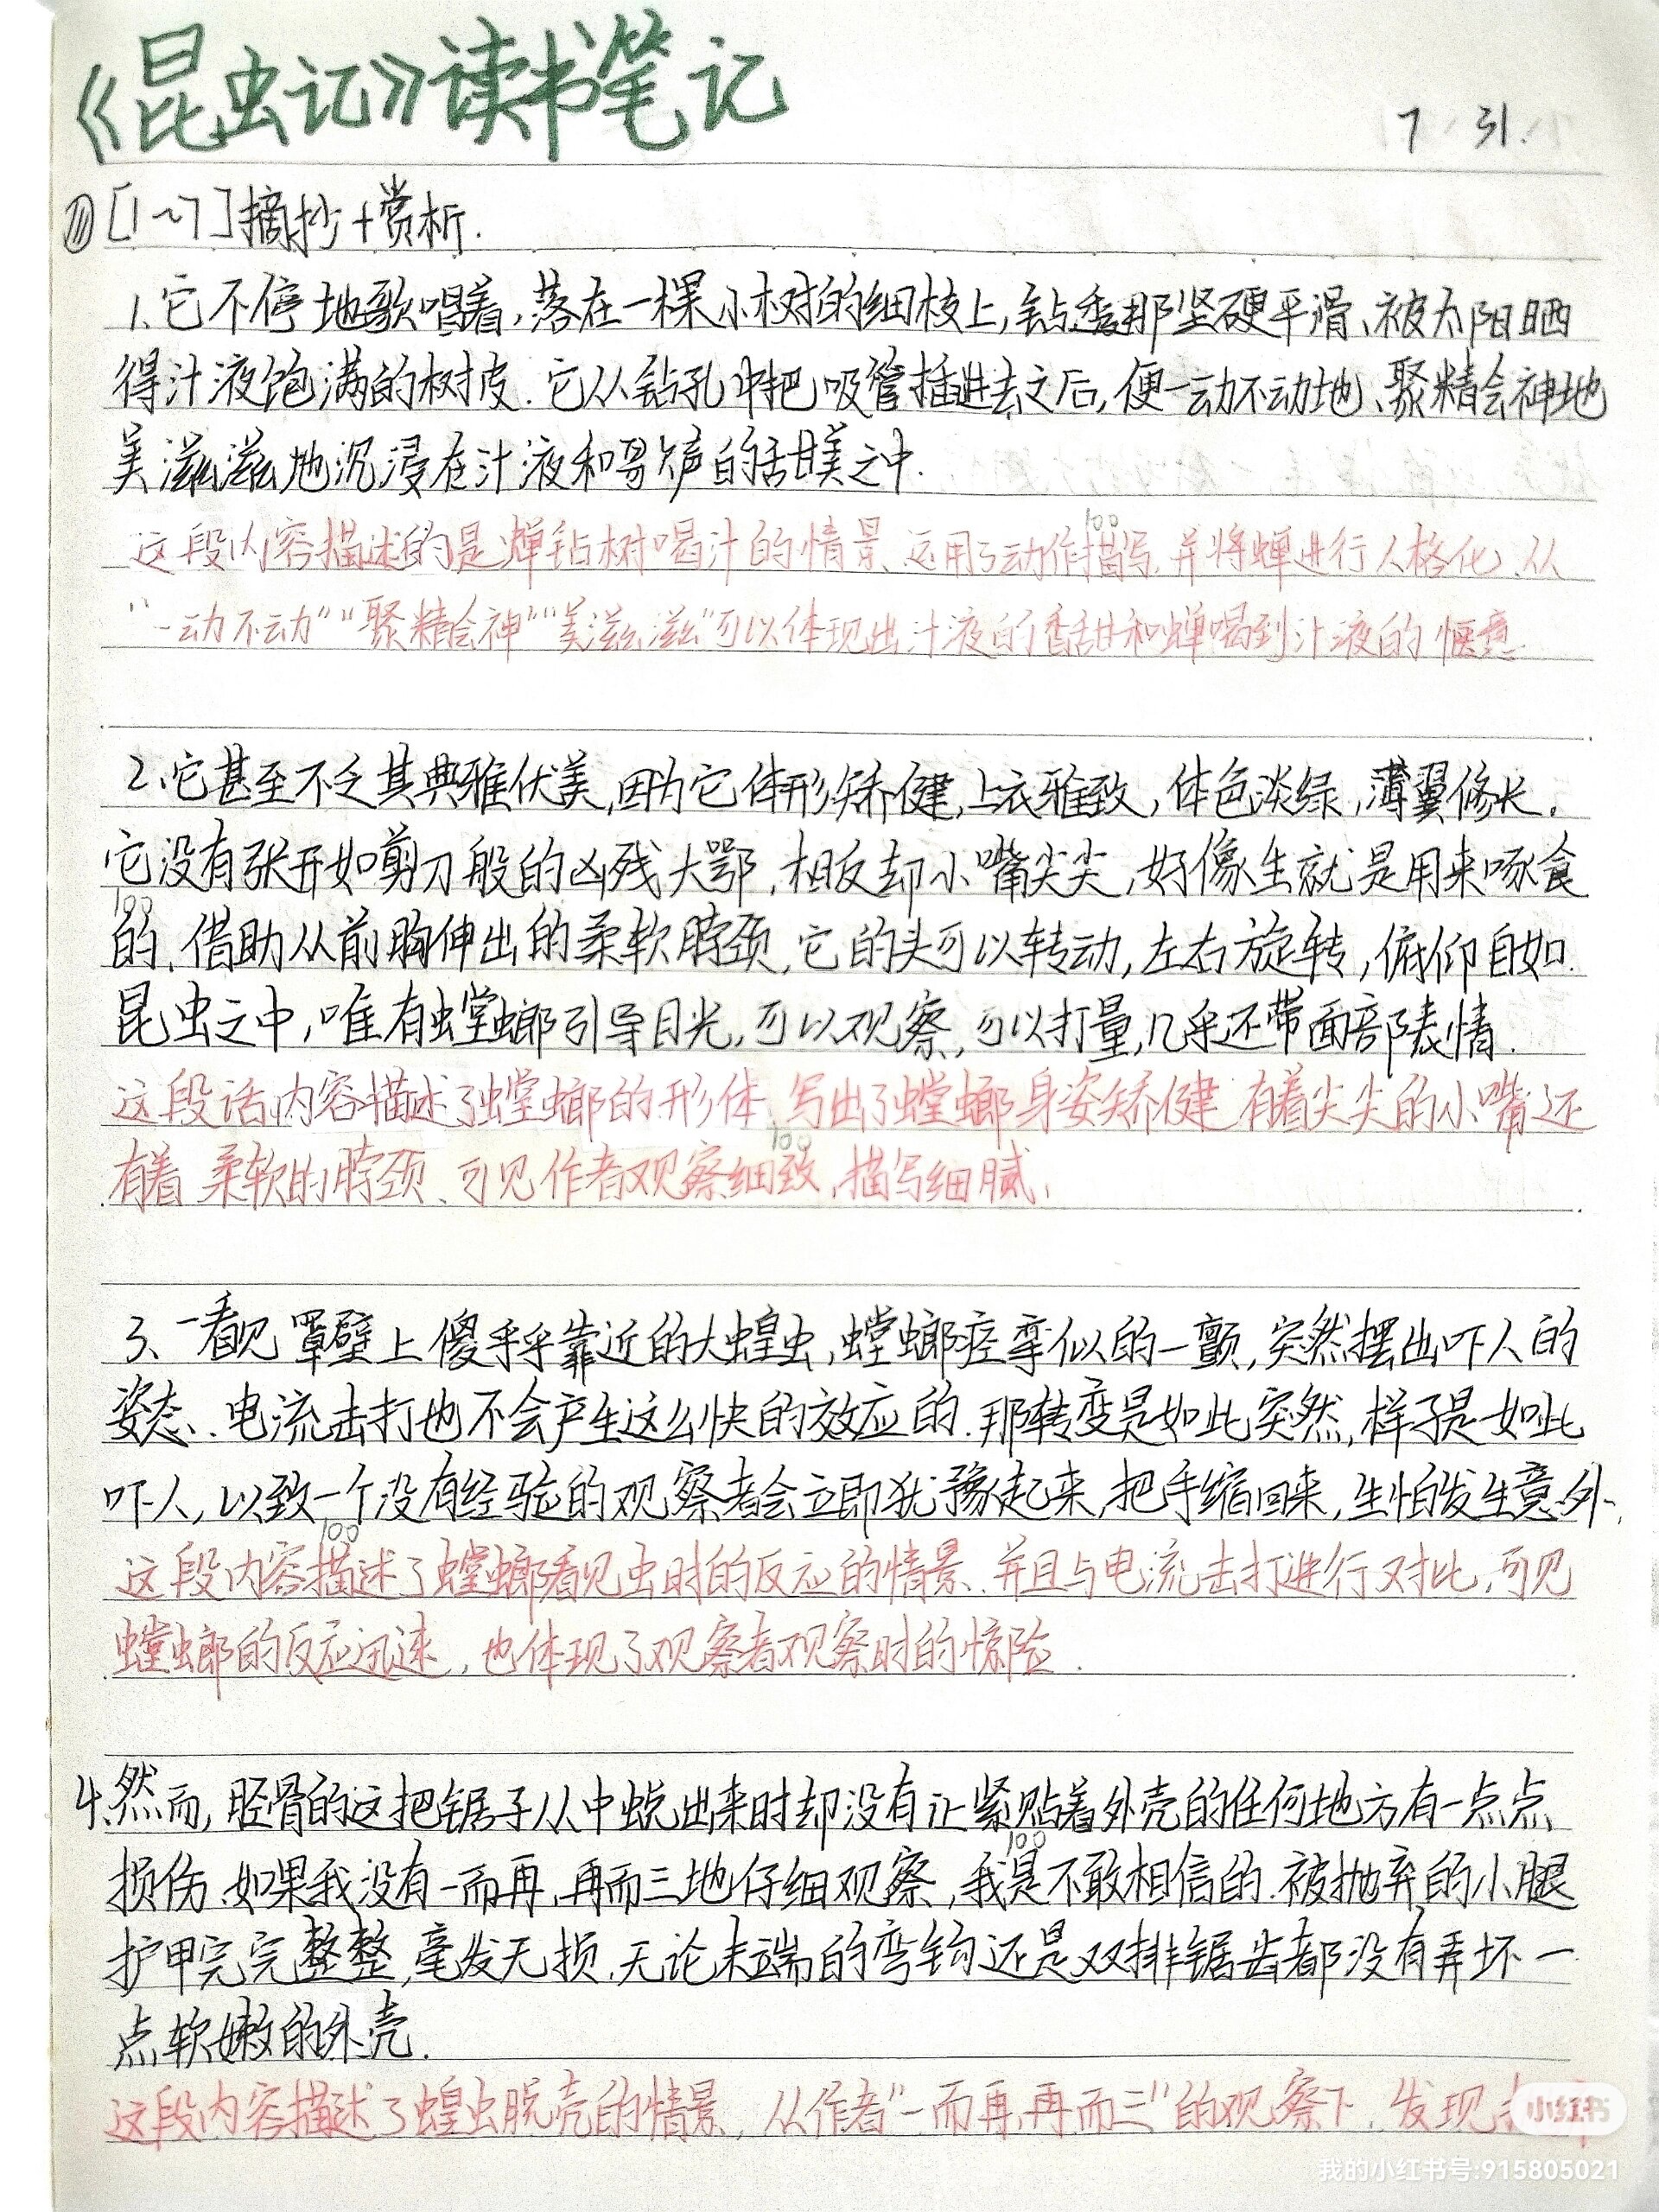 《昆虫记》读书笔记
7 31.
[1~7]摘抄+赏析.
1、它不停地歌唱着,落在一棵小树的细枝上,钻透那坚硬平滑、被太阳晒
得汁液饱满的树皮.它从钻孔中把吸管插进去之后,便一动不动地、聚精会神地
美滋滋地沉浸在汁液和歌声的甜美之中.
100
这段内容描述的是蝉钻树喝汁的情景、运用了动作描写,并将蝉进行人格化、从
“一动不动”“聚精会神”“美滋滋”可以体现出汁液的香甜和蝉喝到汁液的惬意.
2、它甚至不乏其典雅优美,因为它体形矫健,上衣雅致,体色淡绿,薄翼修长.
它没有张开如剪刀般的凶残大鄂,相反却小嘴尖尖,好像生就是用来啄食
100
的、借助从前胸伸出的柔软脖颈,它的头可以转动,左右旋转,俯仰自如.
昆虫之中,唯有螳螂引导目光,可以观察,可以打量,几乎还带面部表情.
这段话内容描述了螳螂的形体、写出了螳螂身姿矫健 有着尖尖的小嘴还
100
有着柔软的脖颈、可见作者观察细致,描写细腻、
3、一看见罩壁上傻乎乎靠近的大蝗虫,螳螂痉挛似的一颤,突然摆出吓人的
姿态、电流击打也不会产生这么快的效应的.那转变是如此突然,样子是如此
吓人,以致一个没有经验的观察者会立即犹豫起来,把手缩回来,生怕发生意外、
100
这段内容描述了螳螂看见虫时的反应的情景、并且与电流击打进行对比,可见
螳螂的反应迅速,也体现了观察者观察时的惊险.
4、然而,胫骨的这把锯子从中蜕出来时却没有让紧贴着外壳的任何地方有一点点
100
损伤.如果我没有一而再,再而三地仔细观察,我是不敢相信的.被抛弃的小腿
护甲完完整整,毫发无损,无论末端的弯钩还是双排锯齿都没有弄坏一
点软嫩的外壳.
这段内容描述了蝗虫脱壳的情景,从作者“一而再,再而三”的观察下,发现
小红书
我的小红书号:915805021